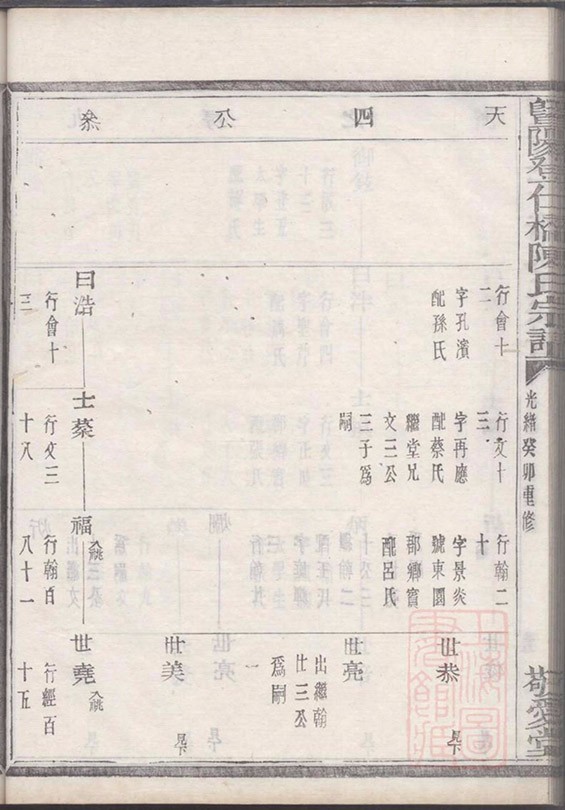 暨陽登仕橋陳氏宗譜
光緒癸卯重修
敬愛堂
天四公叅
行會十
二
字孔濱
配孫氏
曰浩
行會十
三
行文十
三
字再應
配蔡氏
繼堂兄
文三公
三子爲
嗣
士
行文三
十八
行翰二
十
字景炎
號東園
郡鄉賓
配呂氏
福
行翰百
八十一
世恭
世亮
出繼翰
仕三公
爲嗣
一
世美
世堯
行經百
十五